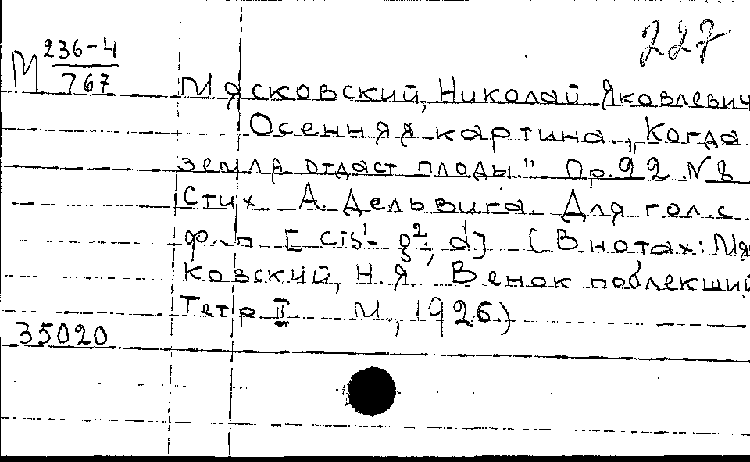 227
М 236-4
767
Мясковский, Николай Яковлевич
Осенняя картина. „Когда
земля отдаст плоды" Ор. 22 № 8
Стих А. Дельвига. Для гол. с
ф-п [cis¹- g², d] (В нотах: Мяс
ковский, Н.Я. Венок поблекший
Тетр II М, 1926.)
35020